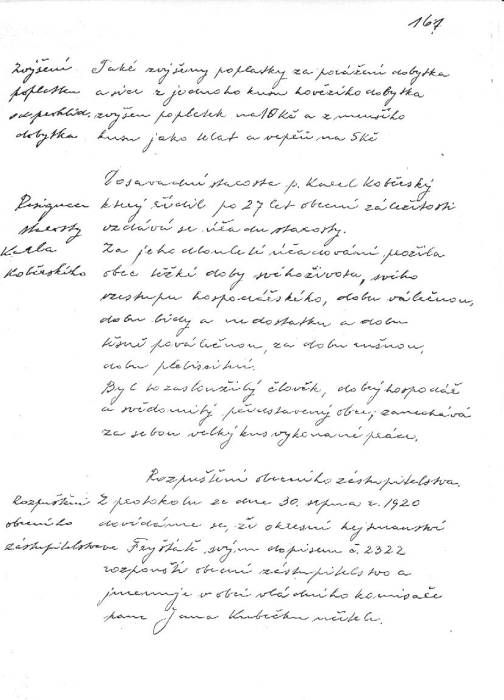 167
Zvýšení
poplatku
dobytka
Také zvýšeny poplatky za porážení dobytka
a sice z jednoho kusu hovězího dobytka
zvýšen poplatek na 10 Kč a z menšího
kusu jako telat a vepřů na 5 Kč
Resignace
starosty
Karla
Koběrského
Dosavadní starosta p. Karel Koběrský
který řídil po 27 let obecní záležitosti
vzdává se úřadu starosty.
Za jeho dlouholeté úřadování prožila
obec těžké doby svého života, svého
vzestupu hospodářského, dobu válečnou,
dobu bídy a nedostatku a dobu
těsně poválečnou, za dobu rušnou,
dobu plebiscitní.
Byl to zasloužilý člověk, dobrý hospodář
a svědomitý představený obce, zanechává
za sebou velký kus vykonané práce.
Rozpuštění obecního zástupitelstva.
Rozpuštění
obecního
zástupitelstva
Z protokolu ze dne 30. srpna r. 1920
dovídáme se, že okresní hejtmanství
ve Fryštátě svým dopisem č. 2322
rozpouští obecní zástupitelstvo a
jmenuje v obci vládního komisaře
pana Jana Kubečku učitele.